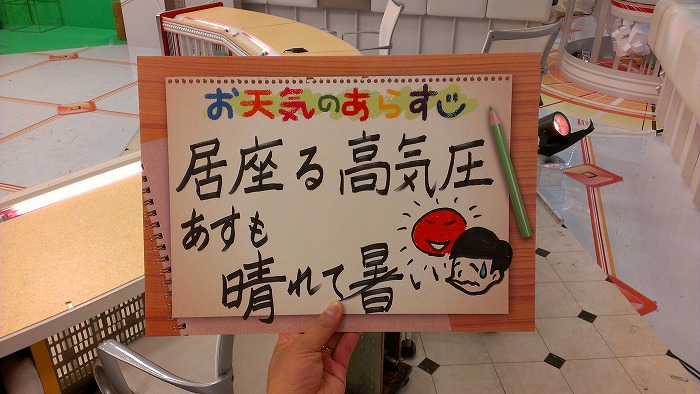 お天気のあらすじ
居座る高気圧
あすも
晴れて暑い